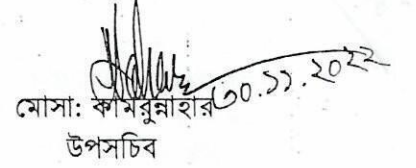 ৩০.১১.২০২২
মোসা: কামরুন্নাহার
উপসচিব